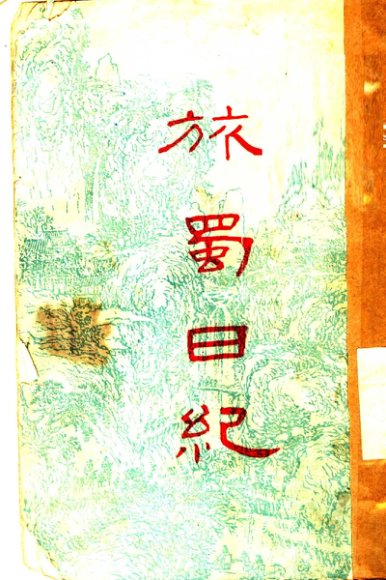 旅蜀日紀